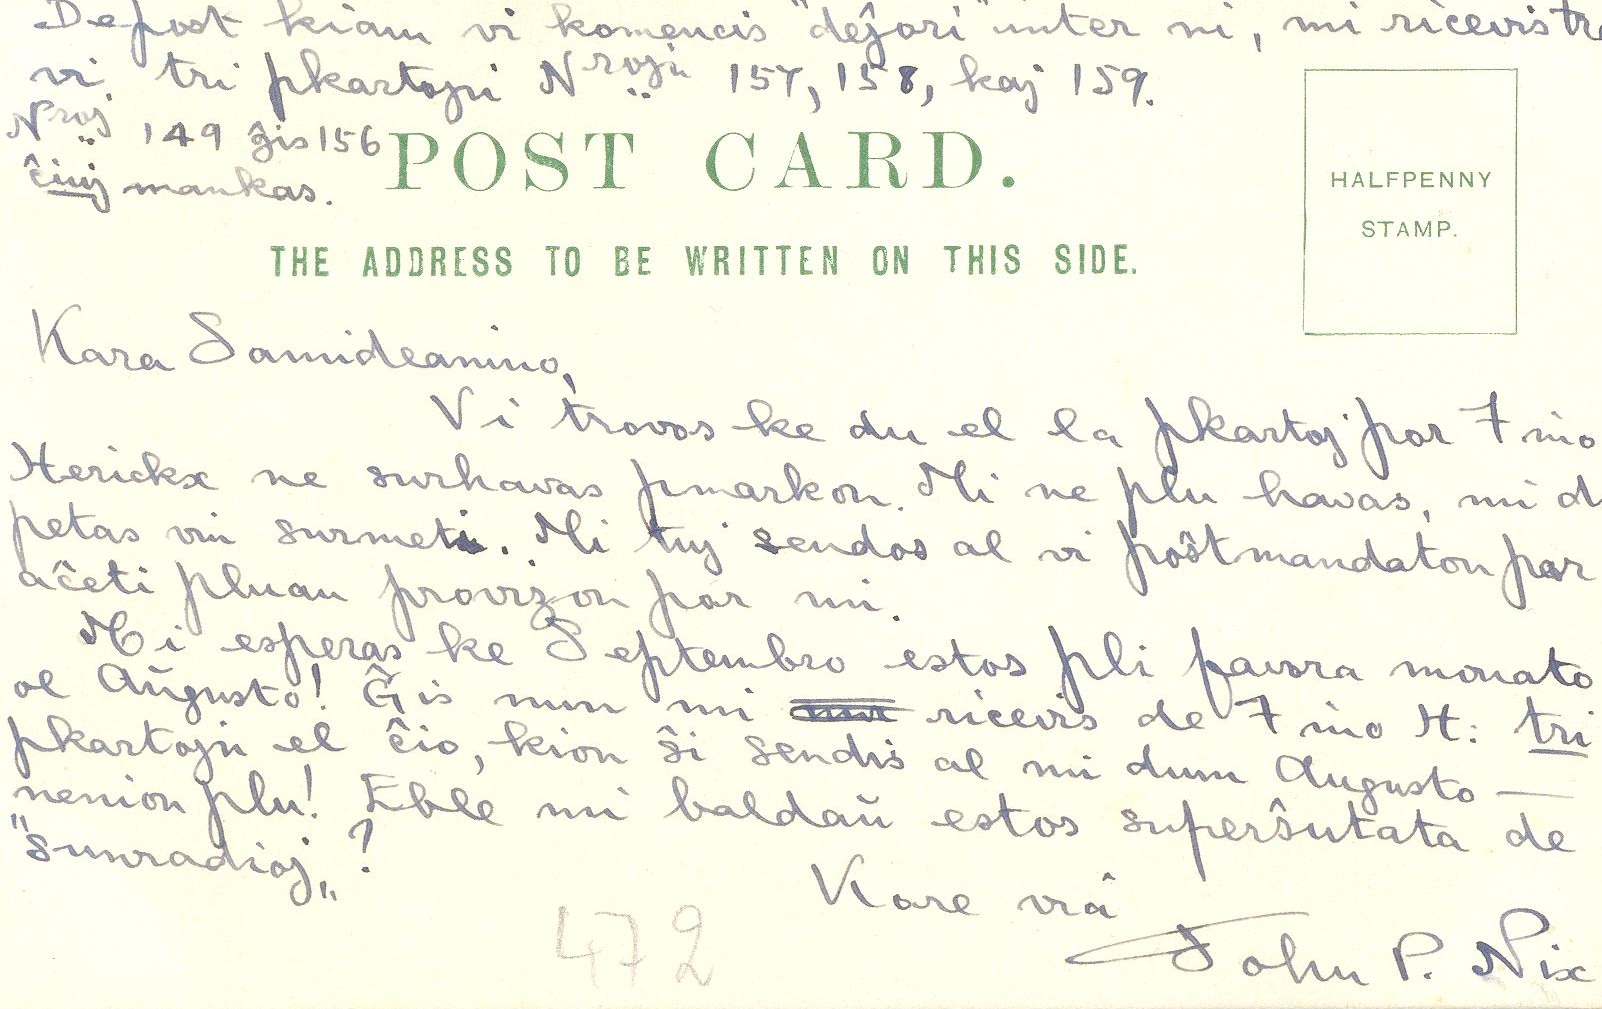 Depost kiam vi komencis "deĵori" inter ni, mi ricevis tre
vi tri pkartojn Nrojn 157, 158, kaj 159.
Nroj 149 ĝis 156
ĉiuj mankas.
POST CARD.
HALFPENNY
STAMP.
THE ADDRESS TO BE WRITTEN ON THIS SIDE.
Kara Samideanino,
Vi trovos ke du el la pkartoj por Fino
Herickx ne surhavas pmarkon. Mi ne plu havas, mi d
petas vin surmeti. Mi tuj sendos al vi poŝtmandaton por
aĉeti pluan provizon por mi.
Mi esperas ke Septembro estos pli favora monato
ol Aŭgusto! Ĝis nun mi ricevis de Fino H: tri
pkartojn el ĉio, kion ŝi sendis al mi dum Augusto —
nenion plu! Eble mi baldaŭ estos superŝutata de
"sunradioj"?
Kore via
John P. Nix
472